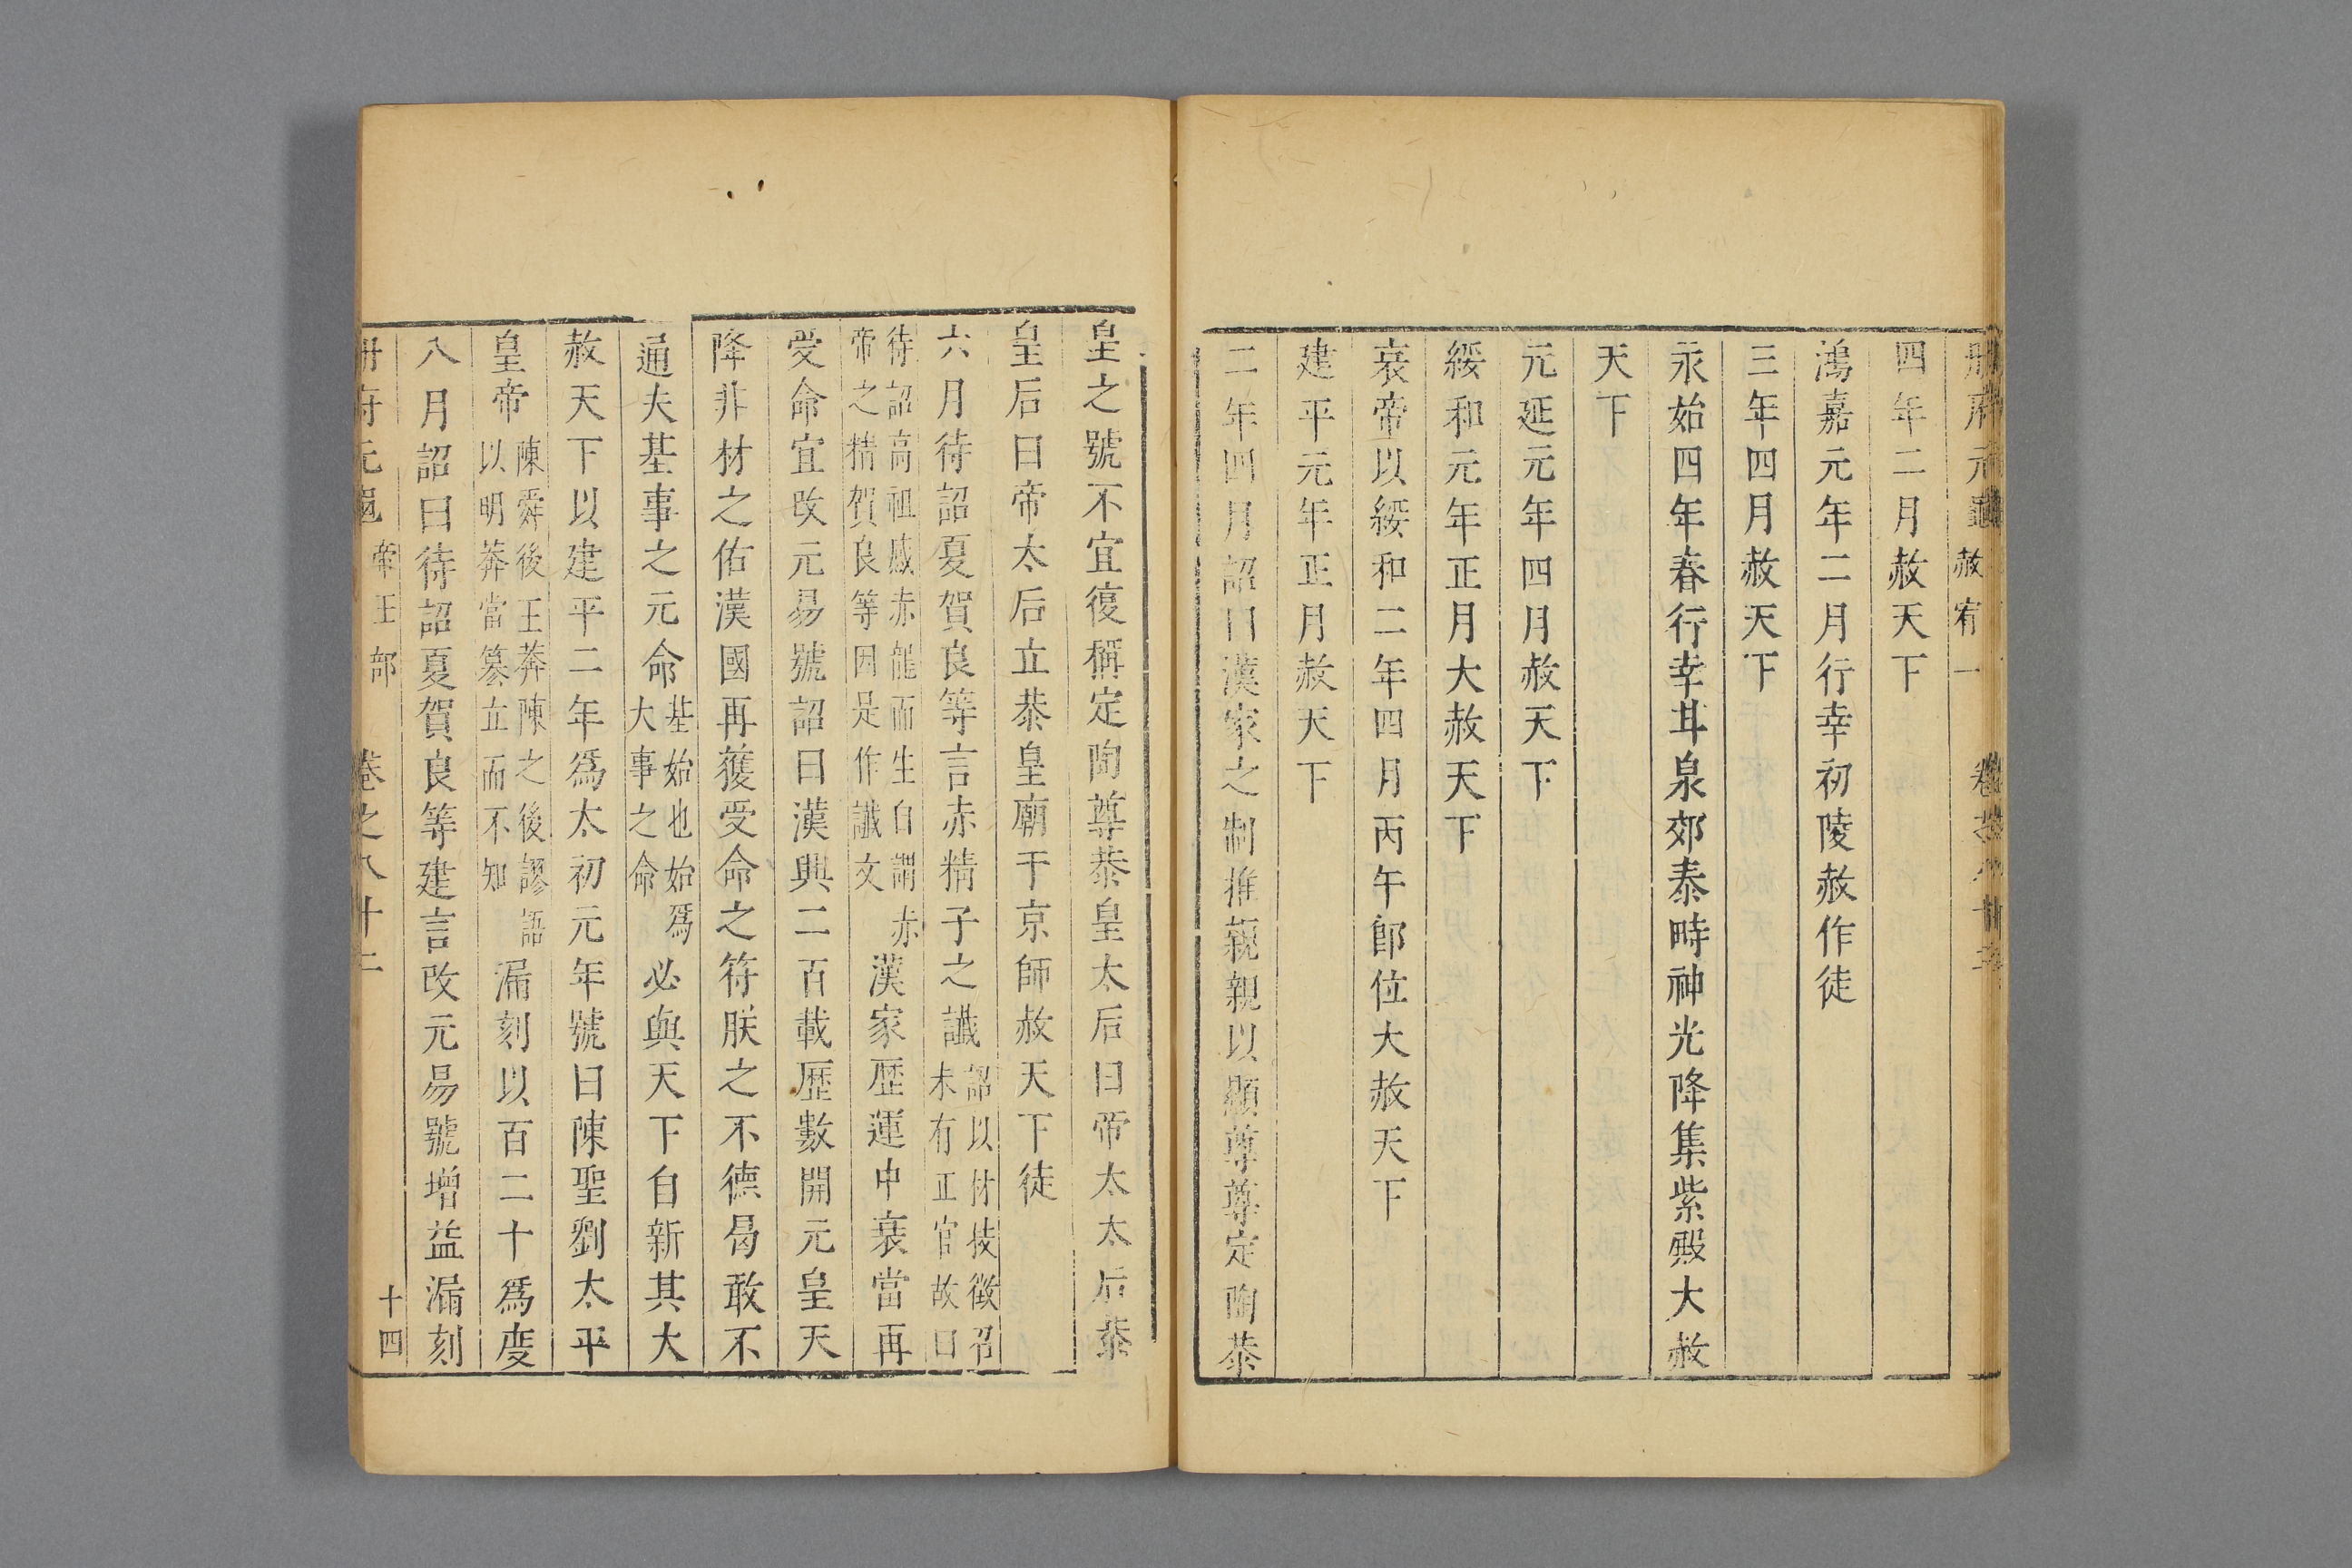 冊府元龜 赦宥一
四年二月赦天下
鴻嘉元年二月行幸初陵赦作徒
三年四月赦天下
永始四年春行幸甘泉郊泰畤神光降集紫殿大赦
天下
元延元年四月赦天下
綏和元年正月大赦天下
哀帝以綏和二年四月丙午即位大赦天下
建平元年正月赦天下
二年四月詔曰漢家之制推親親以顯尊尊定陶恭
皇之號不宜復稱定陶尊恭皇太后曰帝太太后恭
皇后曰帝太后立恭皇廟于京師赦天下徒
六月待詔夏賀良等言赤精子之讖詔以材技徵召未有正官故曰
待詔高祖感赤龍而生自謂赤帝之精賀良等因是作讖文漢家歷運中衰當再
受命宜改元易號詔曰漢興二百載歷數開元皇天
降非材之佑漢國再獲受命之符朕之不德曷敢不
通夫基事之元命基始也始爲大事之命必與天下自新其大
赦天下以建平二年爲太初元年號曰陳聖劉太平
皇帝陳舜後王莽陳之後謬語以明莽當篡立而不知漏刻以百二十爲度
八月詔曰待詔夏賀良等建言改元易號增益漏刻
冊府元龜 帝王部 卷之八十二 十四